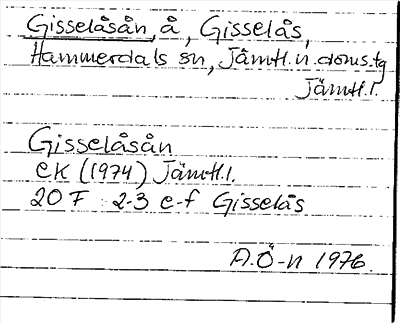 Gisselåsån, å, Gisselås,
Hammerdals sn, Jämtl. n. doms.tg
Jämtl. l.
Gisselåsån
ek (1974) Jämtl. l.
20 F 2-3 e-f Gisselås
A.Ö-n 1976.